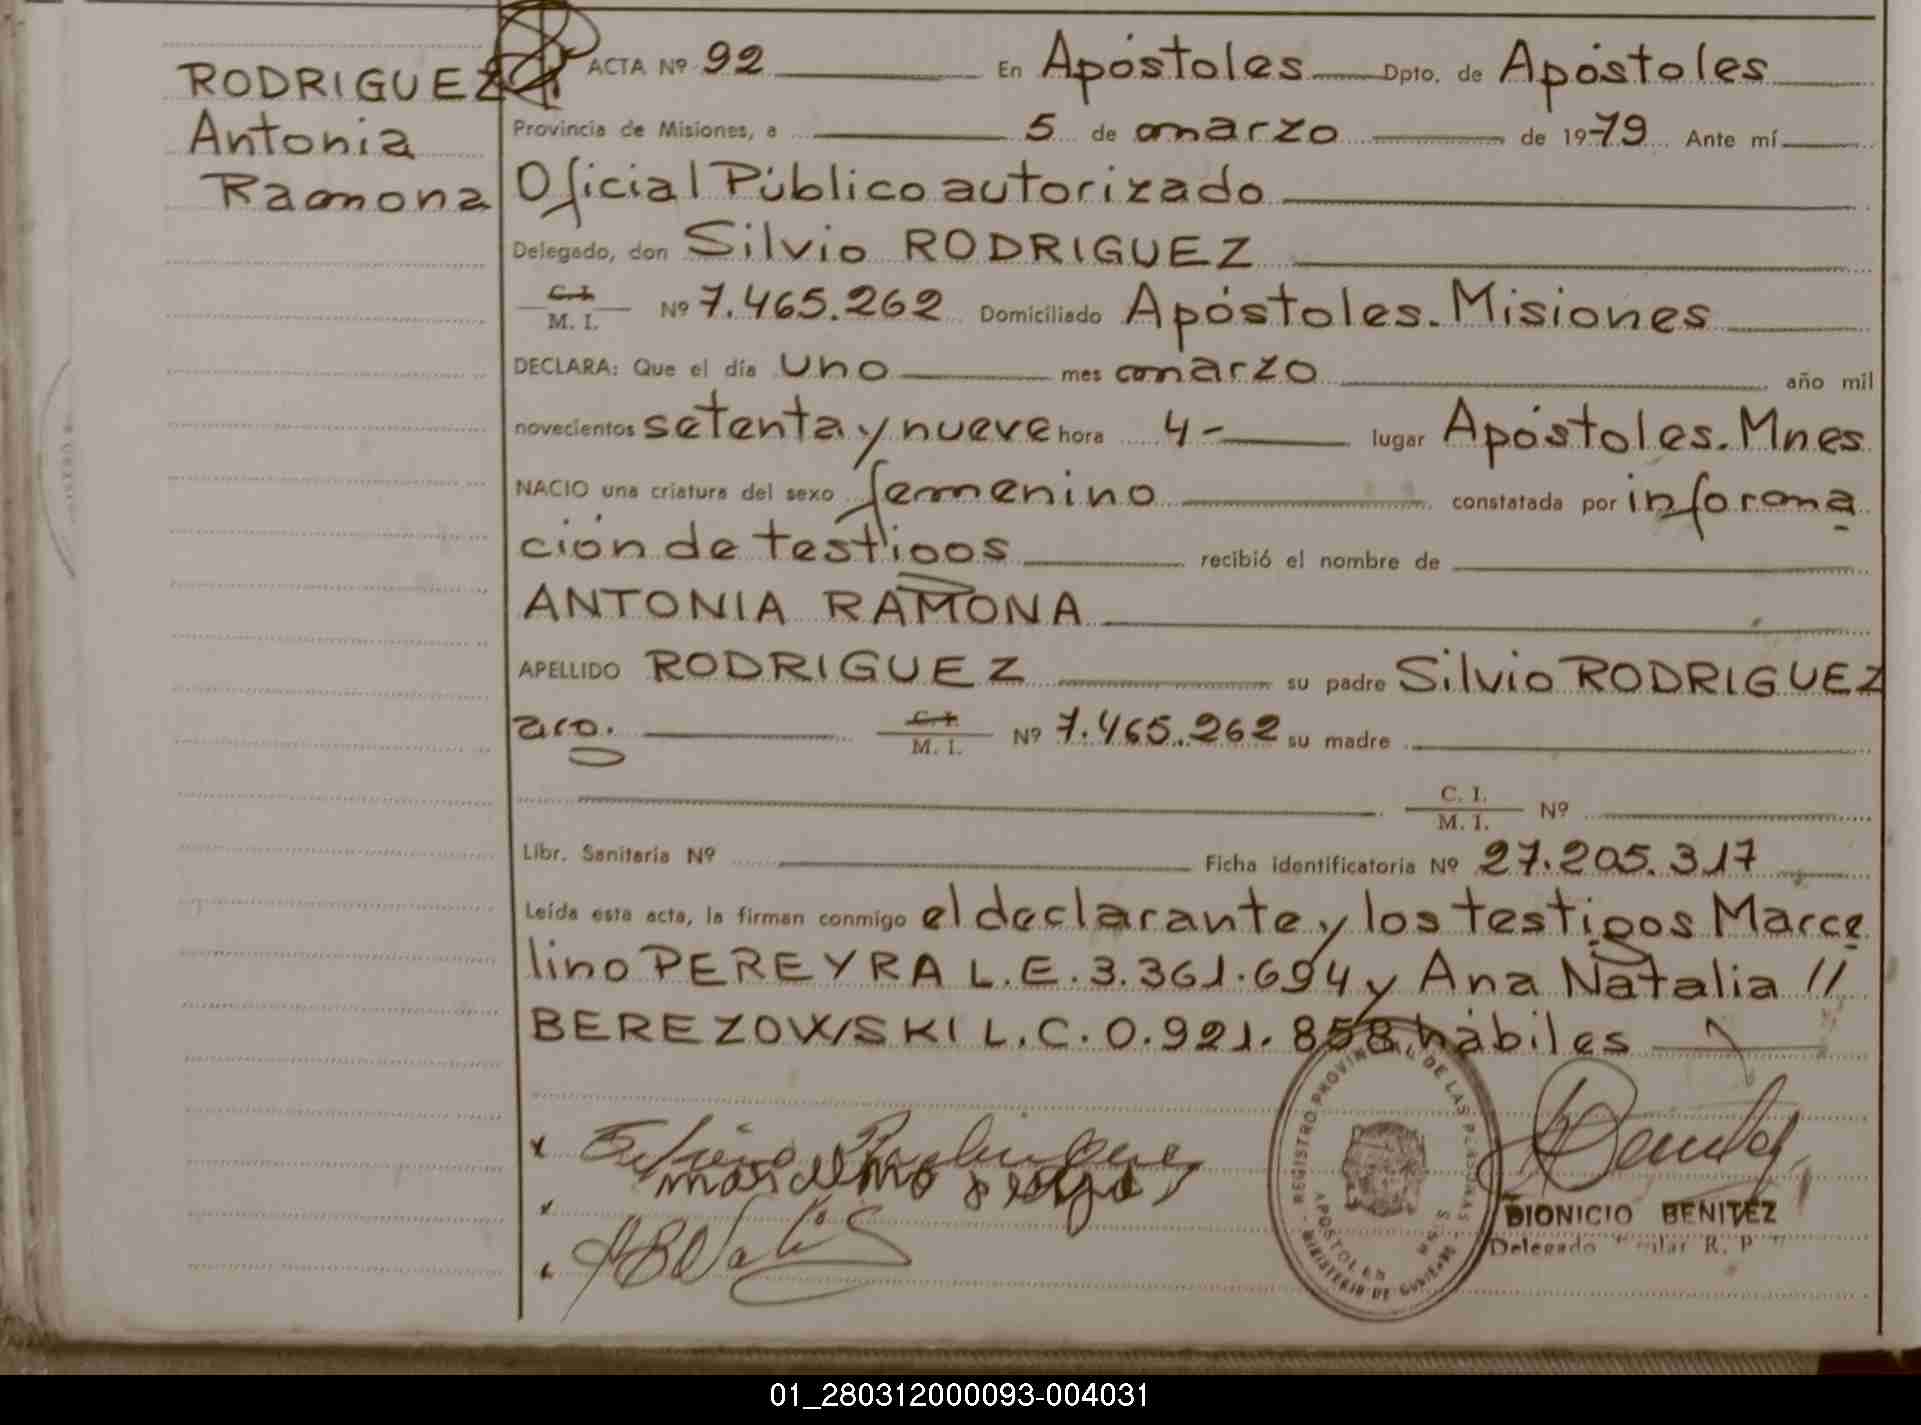 RODRIGUEZ
Antonia
Ramona
ACTA Nº 92 En Apóstoles Dpto. de Apóstoles
Provincia de Misiones, a 5 de marzo de 1979 Ante mí
Oficial Público autorizado
Delegado, don Silvio RODRIGUEZ
C. I. M. I. Nº 7.465.262 Domiciliado Apóstoles. Misiones
DECLARA: Que el día uno mes marzo año mil
novecientos setenta y nueve hora 4- lugar Apóstoles. Mnes
NACIO una criatura del sexo femenino constatada por informa
ción de testigos recibió el nombre de
ANTONIA RAMONA
APELLIDO RODRIGUEZ su padre Silvio RODRIGUEZ
arg. C. I. M. I. Nº 7.465.262 su madre
C. I. M. I. Nº
Libr. Sanitaria Nº Ficha identificatoria Nº 27.205.317
Leída esta acta, la firman conmigo el declarante y los testigos Marce
lino PEREYRA L.E. 3.361.694 y Ana Natalia //
BEREZOWSKI L.C. 0.921.858 hábiles
REGISTRO PROVINCIAL DE LAS PERSONAS
APOSTOLES
MNES.
MINISTERIO DE GOBIERNO
DIONICIO BENITEZ
Delegado Titular R. P.
01_280312000093-004031